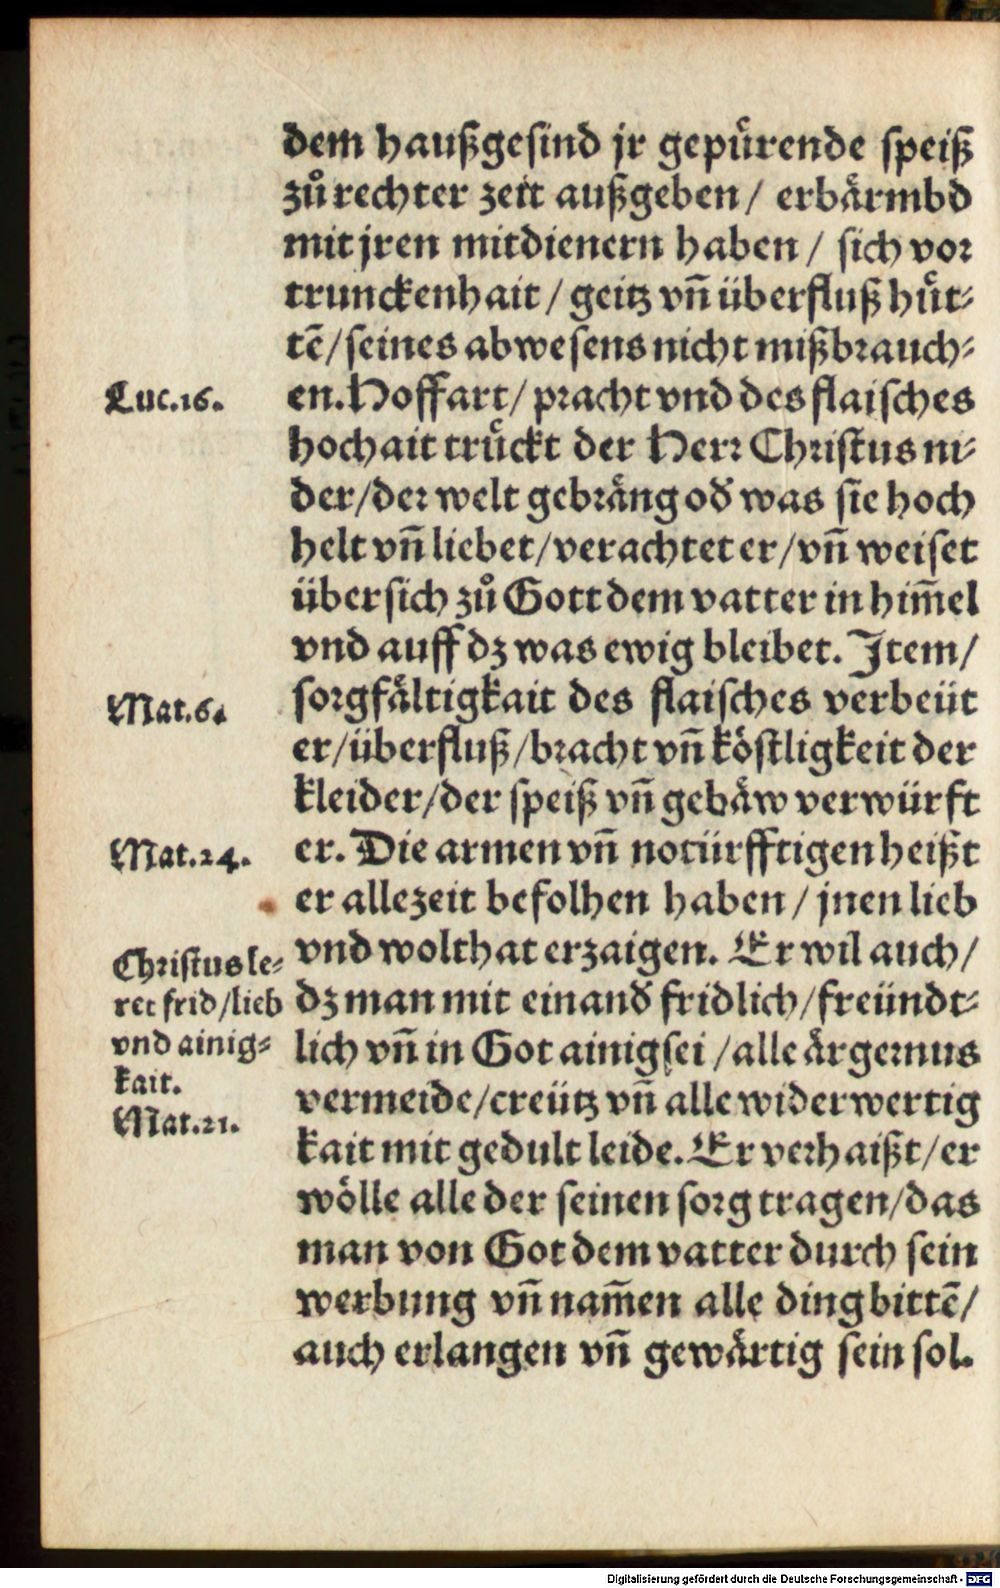 dem haußgesind jr gepürende speiß
zů rechter zeit außgeben / erbärmbd
mit jren mitdienern haben / sich vor
trunckenhait / geitz vñ überfluß hüt-
tē / seines abwesens nicht mißbrauch-
Luc.16.
en. Hoffart / pracht vnd des flaisches
hochait trückt der Herr Christus ni-
der / der welt gebräng od̄ was sie hoch
helt vñ liebet / verachtet er / vñ weiset
übersich zů Gott dem vatter in him̄el
vnd auff dz was ewig bleibet. Item /
Mat.6.
sorgfältigkait des flaisches verbeüt
er / überfluß / bracht vñ köstligkeit der
kleider / der speiß vñ gebäw verwürft
Mat.24.
er. Die armen vñ notürfftigen heißt
er allezeit befolhen haben / jnen lieb
vnd wolthat erzaigen. Er wil auch /
dz man mit einand̄ fridlich / freündt-
lich vñ in Got ainig sei / alle ärgernus
vermeide / creütz vñ alle widerwertig
kait mit gedult leide. Er verhaißt / er
wölle alle der seinen sorg tragen / das
man von Got dem vatter durch sein
werbung vñ nam̄en alle ding bittē /
auch erlangen vñ gewärtig sein sol.
Christus le-
ret frid / lieb
vnd ainig-
kait.
Mat.21.
Digitalisierung gefördert durch die Deutsche Forschungsgemeinschaft - DFG